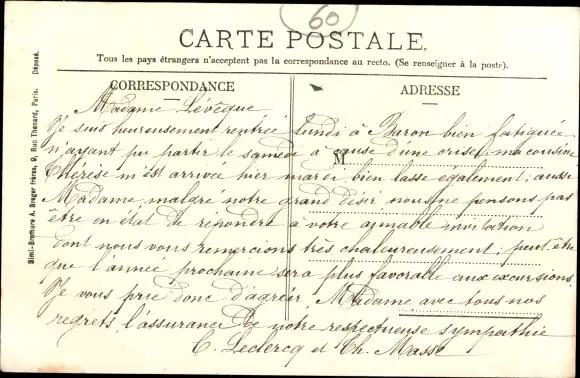 60
CARTE POSTALE.
Tous les pays étrangers n'acceptent pas la correspondance au recto. (Se renseigner à la poste).
CORRESPONDANCE
ADRESSE
M
Simi-Bromure A. Breger frères, 9, Rue Thénard, Paris. Déposé.
Madame Lévêque
Je suis heureusement rentrée lundi à Baron bien fatiguée,
n'ayant pu partir le samedi à cause d'une crise, ma cousine
Thérèse m'est arrivée hier mardi bien lasse également; aussi
Madame, malgré notre grand désir nous ne pensons pas
être en état de répondre à votre aimable invitation
dont nous vous remercions très chaleureusement, peut-être
que l'année prochaine sera plus favorable aux excursions.
Je vous prie donc d'agréer, Madame avec tous nos
regrets l'assurance de notre respectueuse sympathie
C. Leclercq et Ch. Masse